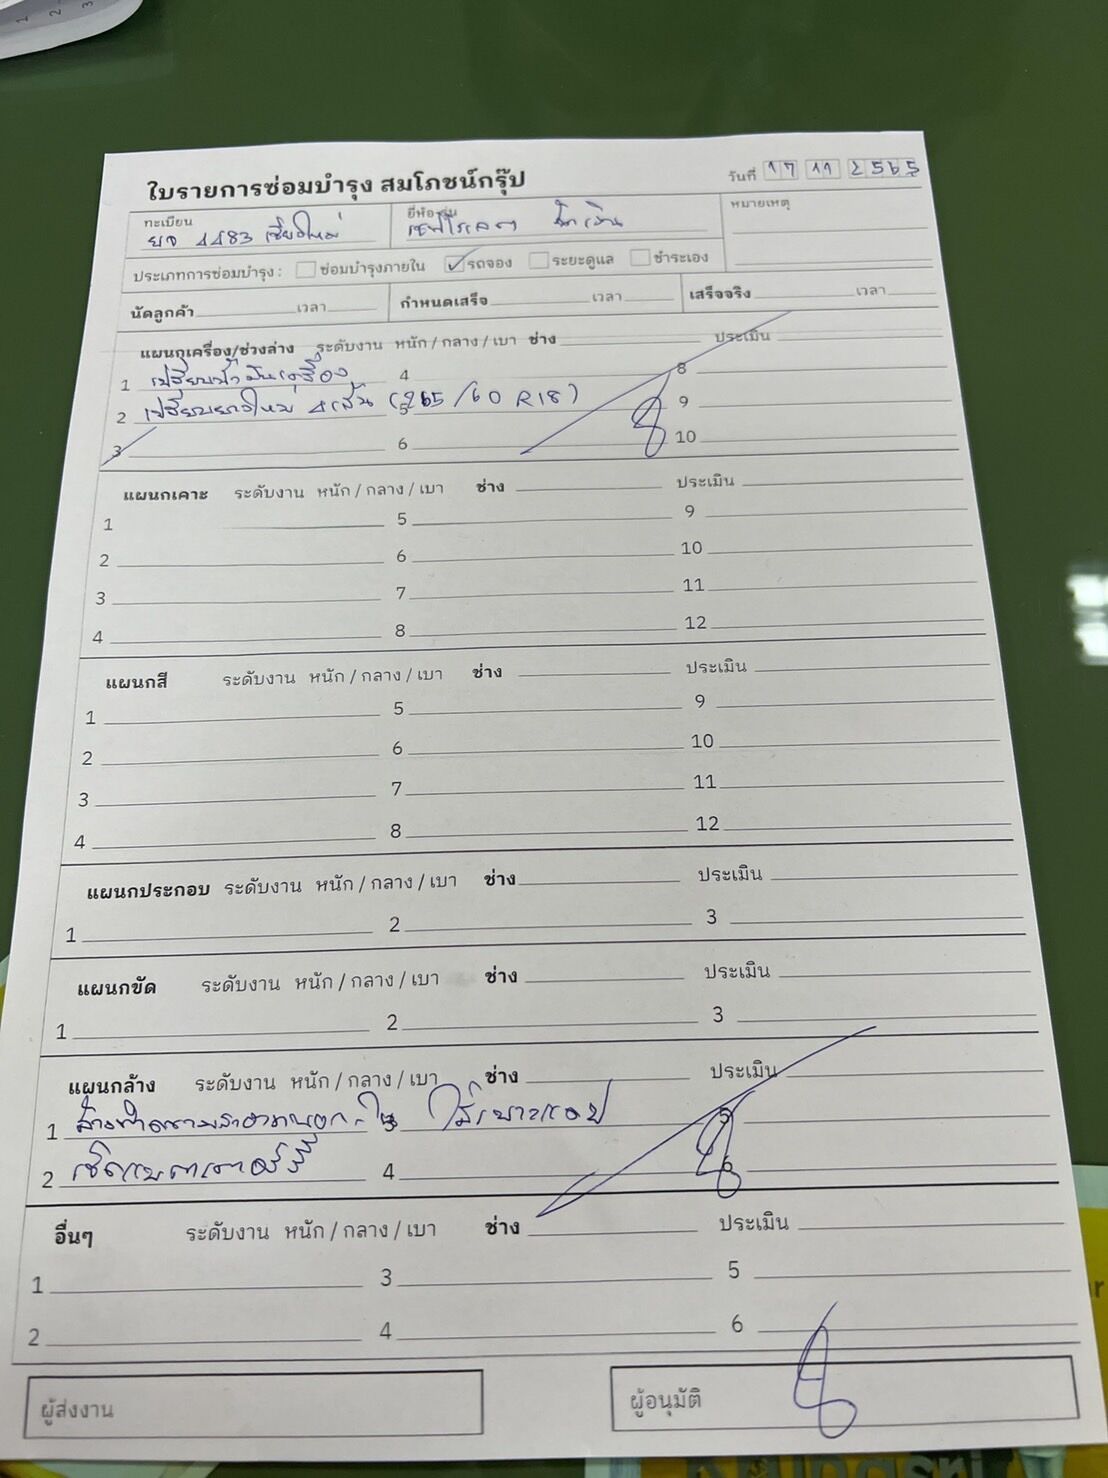 ใบรายการซ่อมบำรุง สมโภชน์กรุ๊ป
วันที่ 17 11 2565
ทะเบียน ยี่ห้อ/รุ่น หมายเหตุ
4483 เชียงใหม่ เชฟโรเลต
ประเภทการซ่อมบำรุง : ซ่อมบำรุงภายใน ✓ รถจอง ระยะดูแล ชำระเอง
นัดลูกค้า เวลา กำหนดเสร็จ เวลา เสร็จจริง เวลา
แผนกเครื่อง/ช่วงล่าง ระดับงาน หนัก / กลาง / เบา ช่าง ประเมิน
1 เปลี่ยนน้ำมันเครื่อง 4 8
2 เปลี่ยนยางใหม่ 4 เส้น (265/60 R18) 5 9
3 6 10
แผนกเคาะ ระดับงาน หนัก / กลาง / เบา ช่าง ประเมิน
1 5 9
2 6 10
3 7 11
4 8 12
แผนกสี ระดับงาน หนัก / กลาง / เบา ช่าง ประเมิน
1 5 9
2 6 10
3 7 11
4 8 12
แผนกประกอบ ระดับงาน หนัก / กลาง / เบา ช่าง ประเมิน
1 2 3
แผนกขัด ระดับงาน หนัก / กลาง / เบา ช่าง ประเมิน
1 2 3
แผนกล้าง ระดับงาน หนัก / กลาง / เบา ช่าง ประเมิน
1 ล้างทำความสะอาดนอก-ใน 3 5
2 เช็คแบตเตอรี่ 4 6
อื่นๆ ระดับงาน หนัก / กลาง / เบา ช่าง ประเมิน
1 3 5
2 4 6
ผู้ส่งงาน ผู้อนุมัติ